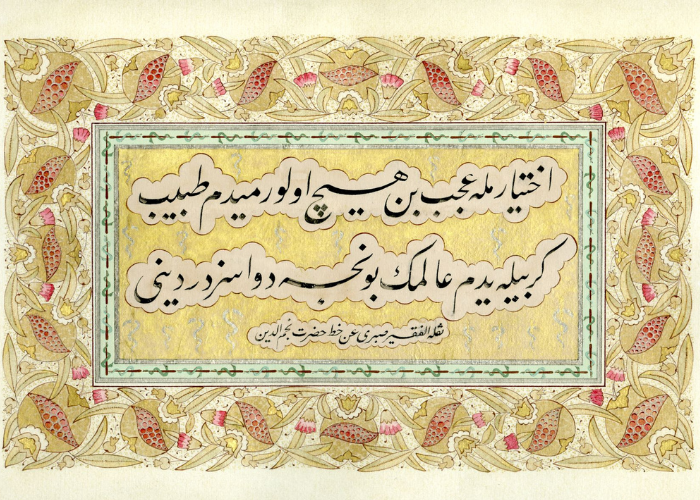 اختیارمله عجب بن هیچ اولورمیدم طبیب
كر بیله یدم عالمك بونجه دواسز دردینی
نقله الفقیر صبری عن خط حضرت نجم الدین